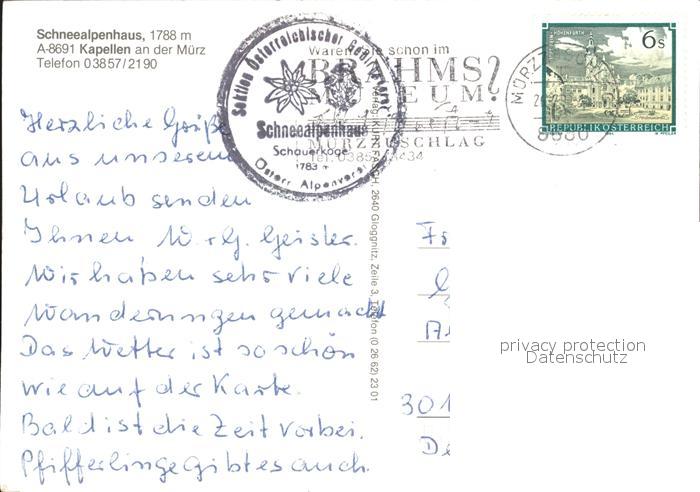 Schneealpenhaus, 1788 m
A-8691 Kapellen an der Mürz
Telefon 03857/2190
Sektion Österreichischer Gebirgsverein
Schneealpenhaus
Schauerkogel
1783 m
Österr. Alpenverein
Waren Sie schon im
BRAHMS?
MUSEUM?
MÜRZZUSCHLAG
Tel. 03852/3434
MÜRZ
8680
6s
REPUBLIK ÖSTERREICH
Herzliche Grüße
aus unserem
Urlaub senden
Ihnen W. u. G. Geisler.
Wir haben sehr viele
Wanderungen gemacht
Das Wetter ist so schön
wie auf der Karte.
Bald ist die Zeit vorbei.
Pfifferlinge gibt es auch.
2640 Gloggnitz, Zeile 3, Telefon (0 26 62) 23 01
301
privacy protection
Datenschutz